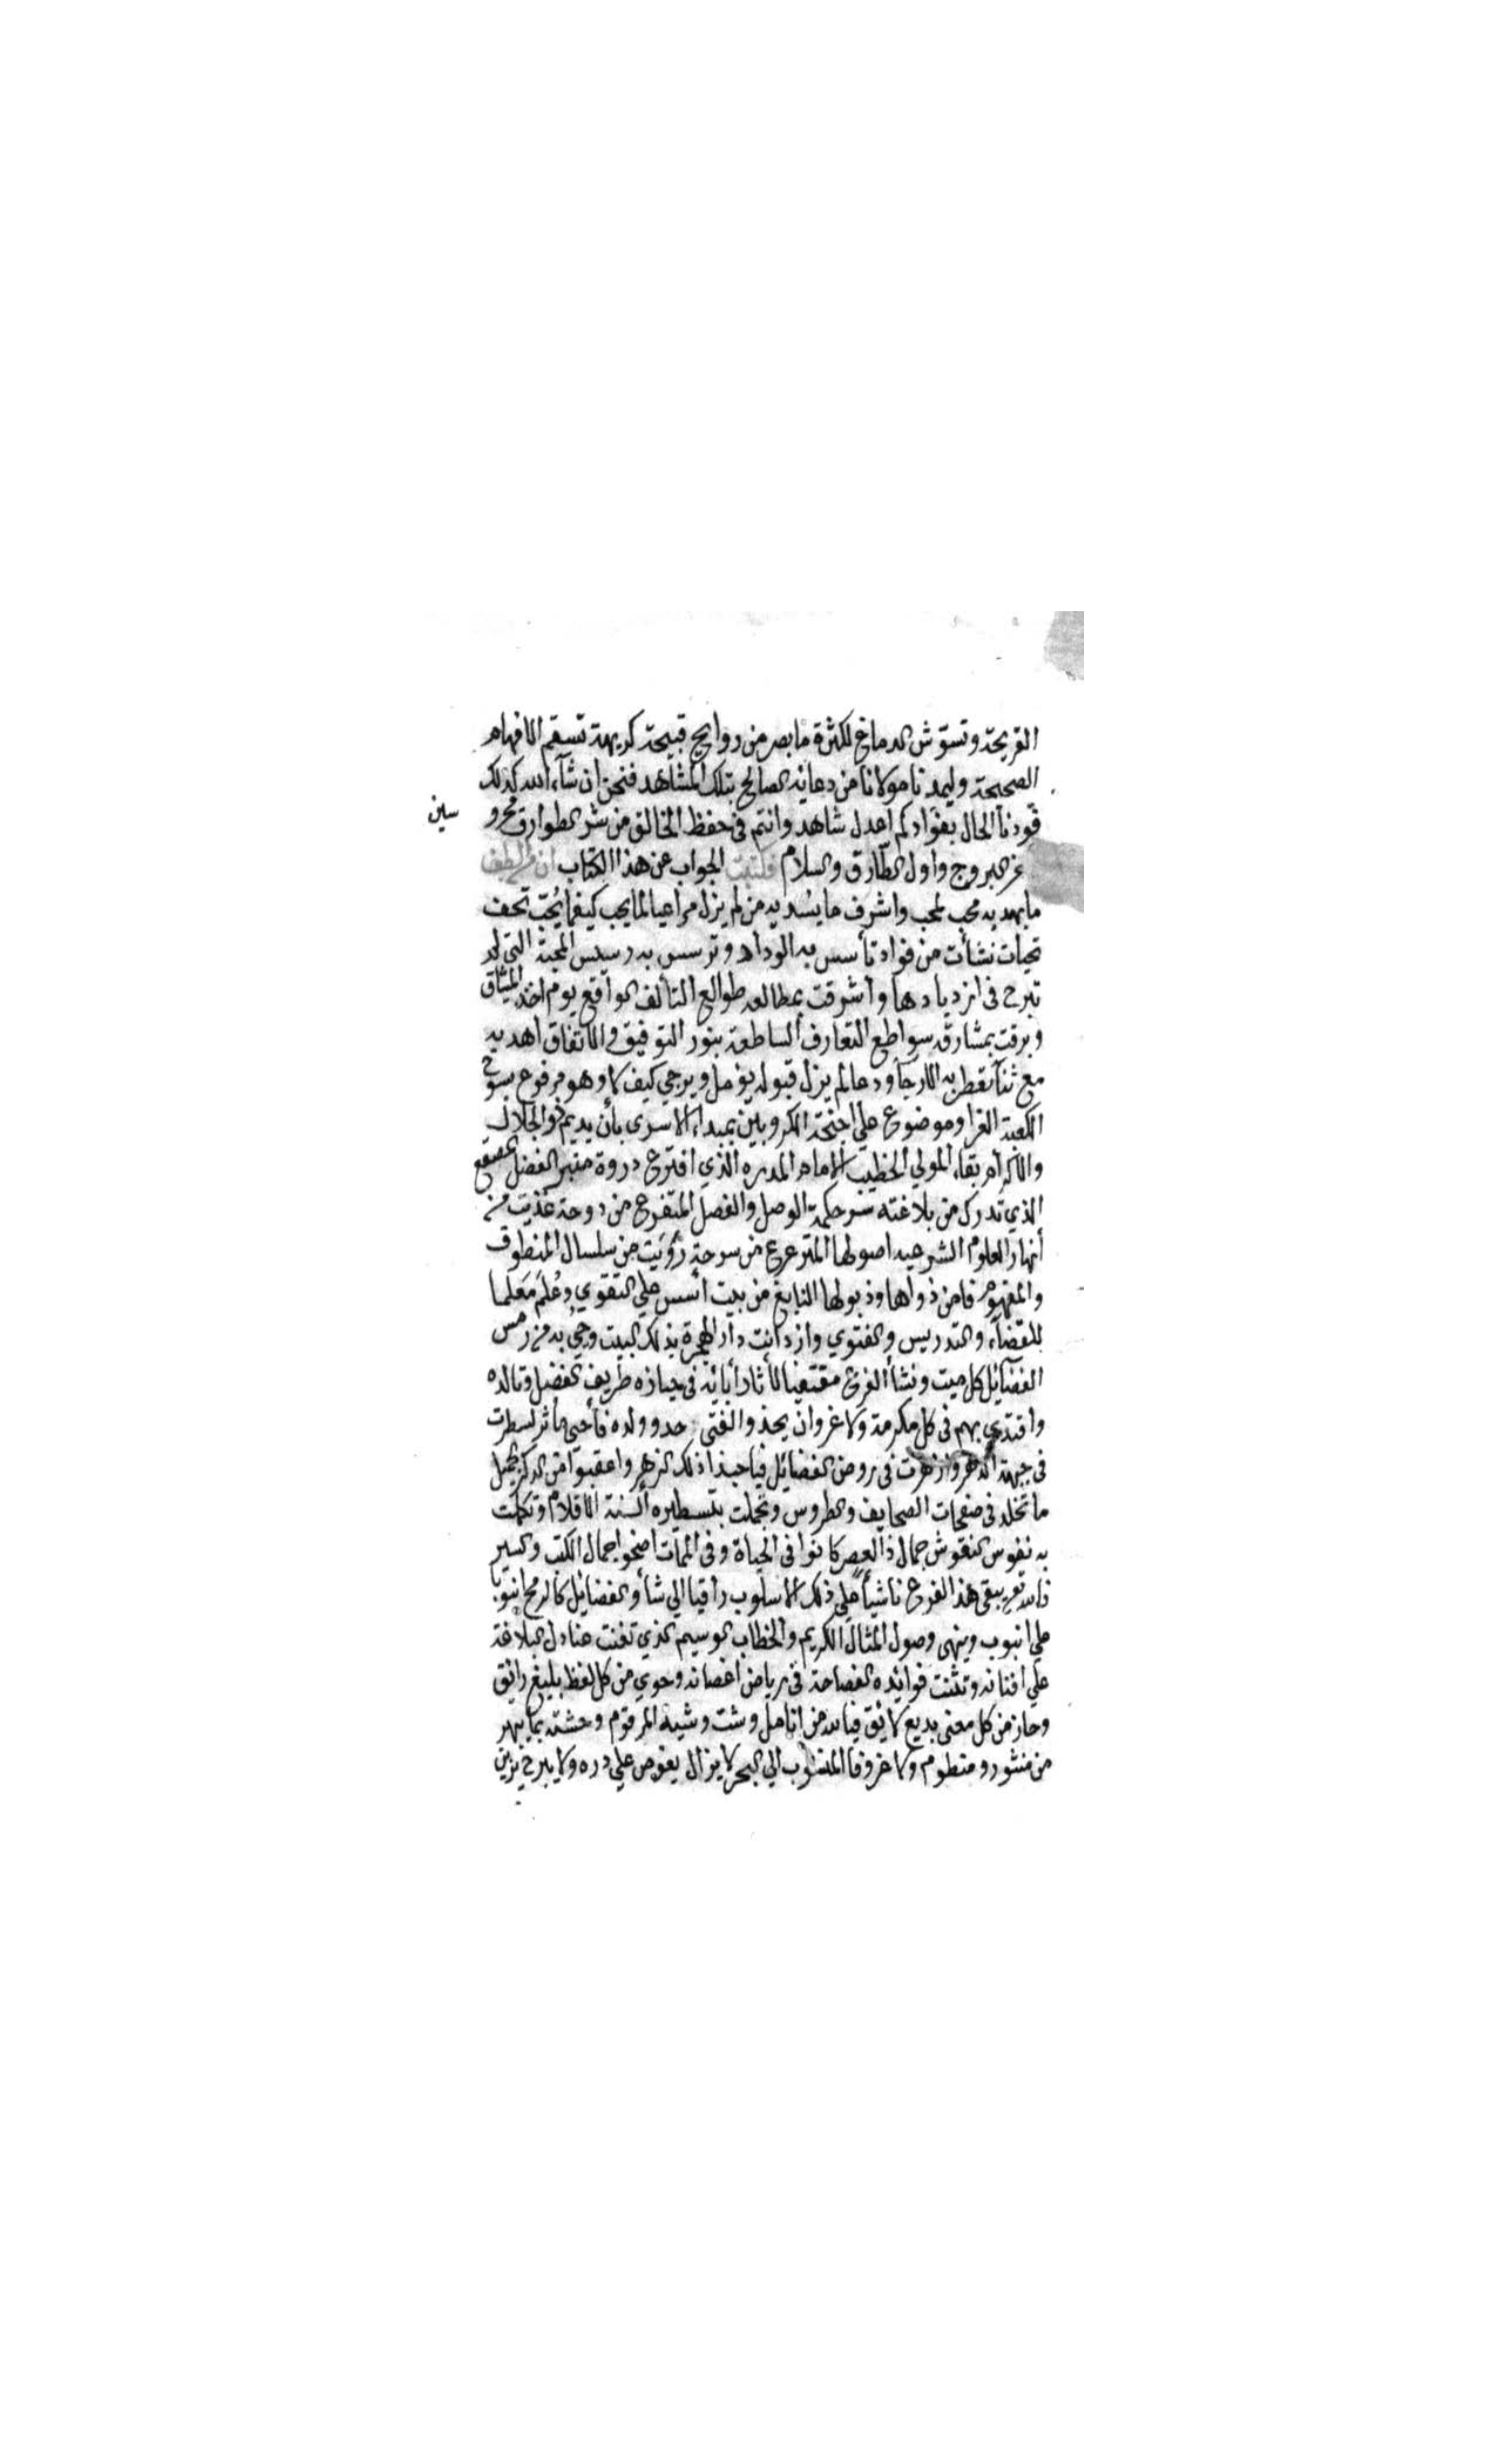 القريحة وتشوش الدماغ لكثرة ما بصر من روايح قبيحة كريهة تسقم الافهام
الصحيحة وليمدنا مولانا من دعائه الصالح بتلك المشاهد فنحن ان شآء الله كذلك
فودنا الحال بفوادكم اعدل شاهد وانتم في حفظ الخالق من شر الطوارق محرو
سين
البروج واول الطارق والسلام فكتبت الجواب عن هذا الكتاب ان
ما يهديه محب لمحب واشرف ما يسديه من لم يزل مراعيا لما يجب كيفما يُحَبّ تحف
تحيات نشأت من فواد تأسس به الوداد وترسس به رسيس المحبة التي لم
تبرح في ازديادها وأشرقت بمطالعه طوالع التألف الواقع يوم اخذ الميثاق
وبرقت بمشارقه سواطع التعارف الساطعة بنور التوفيق والاتفاق اهديه
مع ثنآ تعطر به الارجآ ودعا لم يزل قبوله يؤمل ويرجي كيف لا وهو مرفوع بسوح
الكعبة الغرا وموضوع علي اجنحة الكروبين بمبداء الاسرى بأن يديم ذو الجلال
والاكرام بقاء المولي الخطيب الامام المدره الذي افترع ذروة منبر الفضل المصقع
الذي تدرك من بلاغته سر حكمة الوصل والفصل المتفرع من دوحة غذيت من
أنهار العلوم الشرعيه اصولها المترعرع من سرحة رُوّيت من سلسال المنطوق
والمفهوم فامن ذواها وذبولها النابغ من بيت أسس علي التقوي وعُلم مَعلما
للقضاء والتدريس والفتوي وازدانت دار الهجرة بذلك البيت وحيي به من رمس
الفضآئل كل ميت ونشأ الفرع مقتفيا لأثار أبائه في حيازه طريف الفضل وتالده
واقتدي بهم في كل مكرمة ولا غرو ان يحذو الفتى حدو ولده فأحيى مأثر سطرت
في جبهة الدهر وازهرت في روض الفضائل فيا حبذا ذلك الزهر واعقبوا من الذكر الجميل
ما تخلد في صفحات الصحايف والطروس وتجملت بتسطيره ألسنة الاقلام وتكملت
به نفوس النقوش جمال ذا العصر كانوا في الحياة وفي الممات اضحوا جمال الكتب والسير
فالله يبقي هذا الفرع ناشيأ علي ذلك الاسلوب راقيا الي شأو الفضائل كالرمح انبوبا
علي انبوب وينهى وصول المثال الكريم والخطاب الوسيم الذي تغنت عنادل البلاغة
علي افنانه وتثنت فوائده الفصاحة في رياض اغصانه وحوي من كل لفظ بليغ رائق
وحاز من كل معنى بديع لائق فيالله من انامل وشت وشيه المرقوم وحشته بما يبهر
من منثور ومنظوم ولا غرو فالمنسوب الي البحر لا يزال يغوص علي دره ولا يبرح يزين